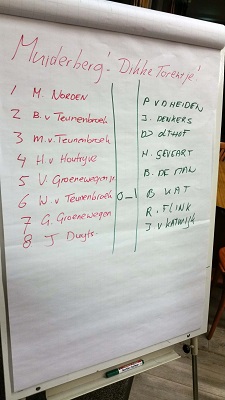 Muiderberg! - Dikke Torentje!
1 M. NORDEN P V D HEIDEN
2 B. v Teunenbroek J. DENKERS
3 M. v Teunenbroek D OTHOF
4 H. v Houtryve H. SEVEART
5 V Groenewegen jr B. DE MAN
6 W. v Teunenbroek 0-1 B KAT
7 G. Groenewegen R. FLINK
8 J Duyts. J. v KATWIJK